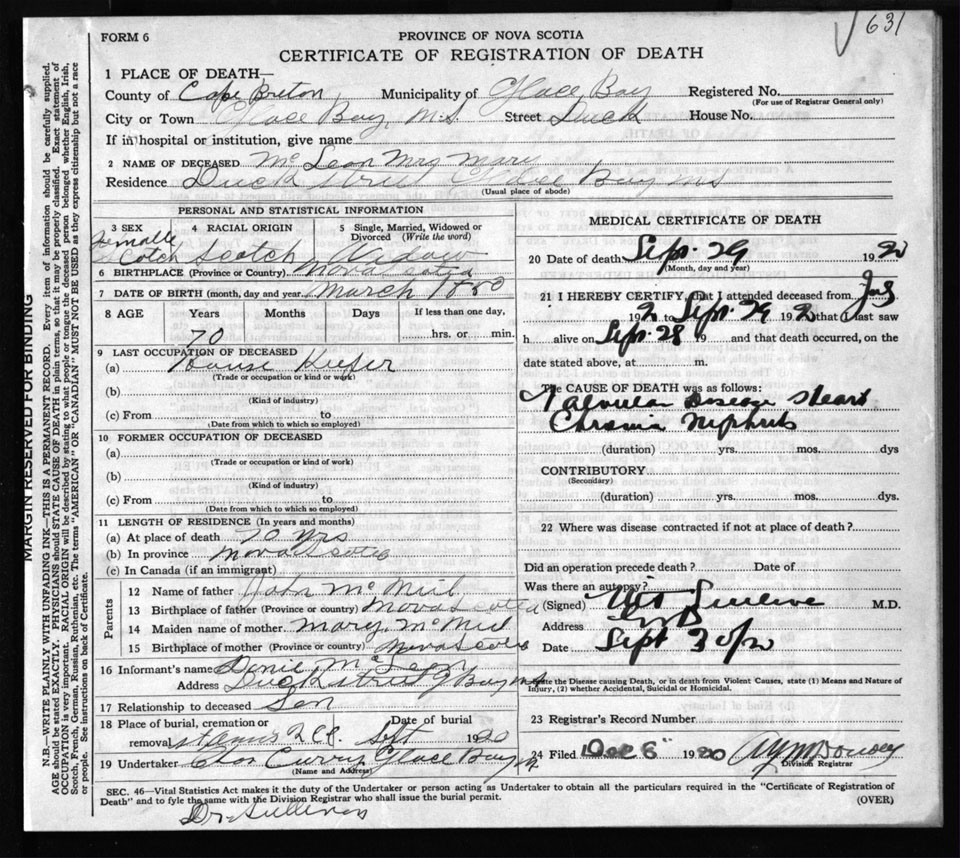 631
FORM 6
PROVINCE OF NOVA SCOTIA
CERTIFICATE OF REGISTRATION OF DEATH
1 PLACE OF DEATH—
County of Cape Breton Municipality of Glace Bay Registered No.
(For use of Registrar General only)
City or Town Glace Bay, N.S. Street Duck House No.
If in hospital or institution, give name
2 NAME OF DECEASED McLean Mrs Mary
Residence Duck Street Glace Bay NS
(Usual place of abode)
PERSONAL AND STATISTICAL INFORMATION
3 SEX 4 RACIAL ORIGIN 5 Single, Married, Widowed or Divorced (Write the word)
Femalle Scotch Widow
Cotch
6 BIRTHPLACE (Province or Country) Nova Scotia
7 DATE OF BIRTH (month, day and year) March 1850
8 AGE Years Months Days If less than one day,
70 hrs. or min.
9 LAST OCCUPATION OF DECEASED
(a) House Keeper
(Trade or occupation or kind or work)
(b)
(Kind of industry)
(c) From to
(Date from which to which so employed)
10 FORMER OCCUPATION OF DECEASED
(a)
(Trade or occupation or kind of work)
(b)
(Kind of industry)
(c) From to
(Date from which to which so employed)
11 LENGTH OF RESIDENCE (In years and months)
(a) At place of death 70 yrs
(b) In province Nova Scotia
(c) In Canada (if an immigrant)
Parents
12 Name of father John McNeil
13 Birthplace of father (Province or country) Nova Scotia
14 Maiden name of mother Mary McNeil
15 Birthplace of mother (Province or country) Nova Scotia
16 Informant's name McLean
Address Duck Street G Bay NS
17 Relationship to deceased Son
18 Place of burial, cremation or removal Date of burial
Sept 1920
19 Undertaker Chas Curry Glace Bay
(Name and Address)
MEDICAL CERTIFICATE OF DEATH
20 Date of death Sept. 29 1920
(Month, day and year)
21 I HEREBY CERTIFY, that I attended deceased from July
192 to Sept. 29 1920 that I last saw
h alive on Sept. 28 19 and that death occurred, on the
date stated above, at m.
The CAUSE OF DEATH was as follows:
Valvular Disease Heart
Chronic Nephritis
(duration) yrs. mos. dys
CONTRIBUTORY
(Secondary)
(duration) yrs. mos. dys.
22 Where was disease contracted if not at place of death?
Did an operation precede death? Date of
Was there an autopsy?
(Signed) M.D.
Address
Date Sept 30/20
State the Disease causing Death, or in death from Violent Causes, state (1) Means and Nature of Injury, (2) whether Accidental, Suicidal or Homicidal.
23 Registrar's Record Number
24 Filed Dec 8 1920
Division Registrar
SEC. 46—Vital Statistics Act makes it the duty of the Undertaker or person acting as Undertaker to obtain all the particulars required in the "Certificate of Registration of
Death" and to fyle the same with the Division Registrar who shall issue the burial permit. (OVER)
Dr. Sullivan
MARGIN RESERVED FOR BINDING
N.B.—WRITE PLAINLY WITH UNFADING INK—THIS IS A PERMANENT RECORD. Every item of information should be carefully supplied.
AGE should be stated EXACTLY. PHYSICIANS should STATE CAUSE OF DEATH in plain terms, so that it may be properly classified. Exact statement of
OCCUPATION is very important. RACIAL ORIGIN will be described by stating to what people or tongue the deceased person belonged whether English, Irish,
Scotch, French, German, Russian, Ruthenian, etc. The terms "AMERICAN" OR "CANADIAN" MUST NOT BE USED as they express citizenship but not a race
or people. See instructions on back of Certificate.